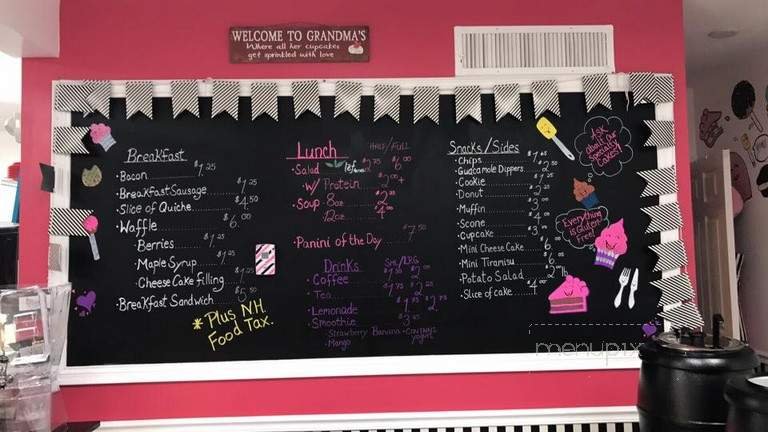 WELCOME TO GRANDMA'S
Where all her cupcakes
get sprinkled with love
Breakfast
• Bacon $1.25
• Breakfast Sausage $1.25
• Slice of Quiche $4.50
• Waffle $6.00
• Berries $1.25
• Maple Syrup $1.25
• Cheese Cake filling $1.25
• Breakfast Sandwich $5.50
* Plus NH.
Food Tax.
Lunch HALF/FULL
• Salad $6.00
w/ Protein
• Soup 8oz
12oz
• Panini of the Day $7.50
Drinks SML/LRG
• Coffee
• Tea
• Lemonade
• Smoothie
Strawberry Banana • CONTAINS
• Mango yogurt
Snacks/Sides
• Chips
• Guacamole Dippers
• Cookie
• Donut
• Muffin
• Scone
• Cupcake
• Mini Cheese Cake
• Mini Tiramisu
• Potato Salad
• Slice of cake
Ask
about our
Specialty
Cakes!
Everything
is Gluten
Free!
menupix